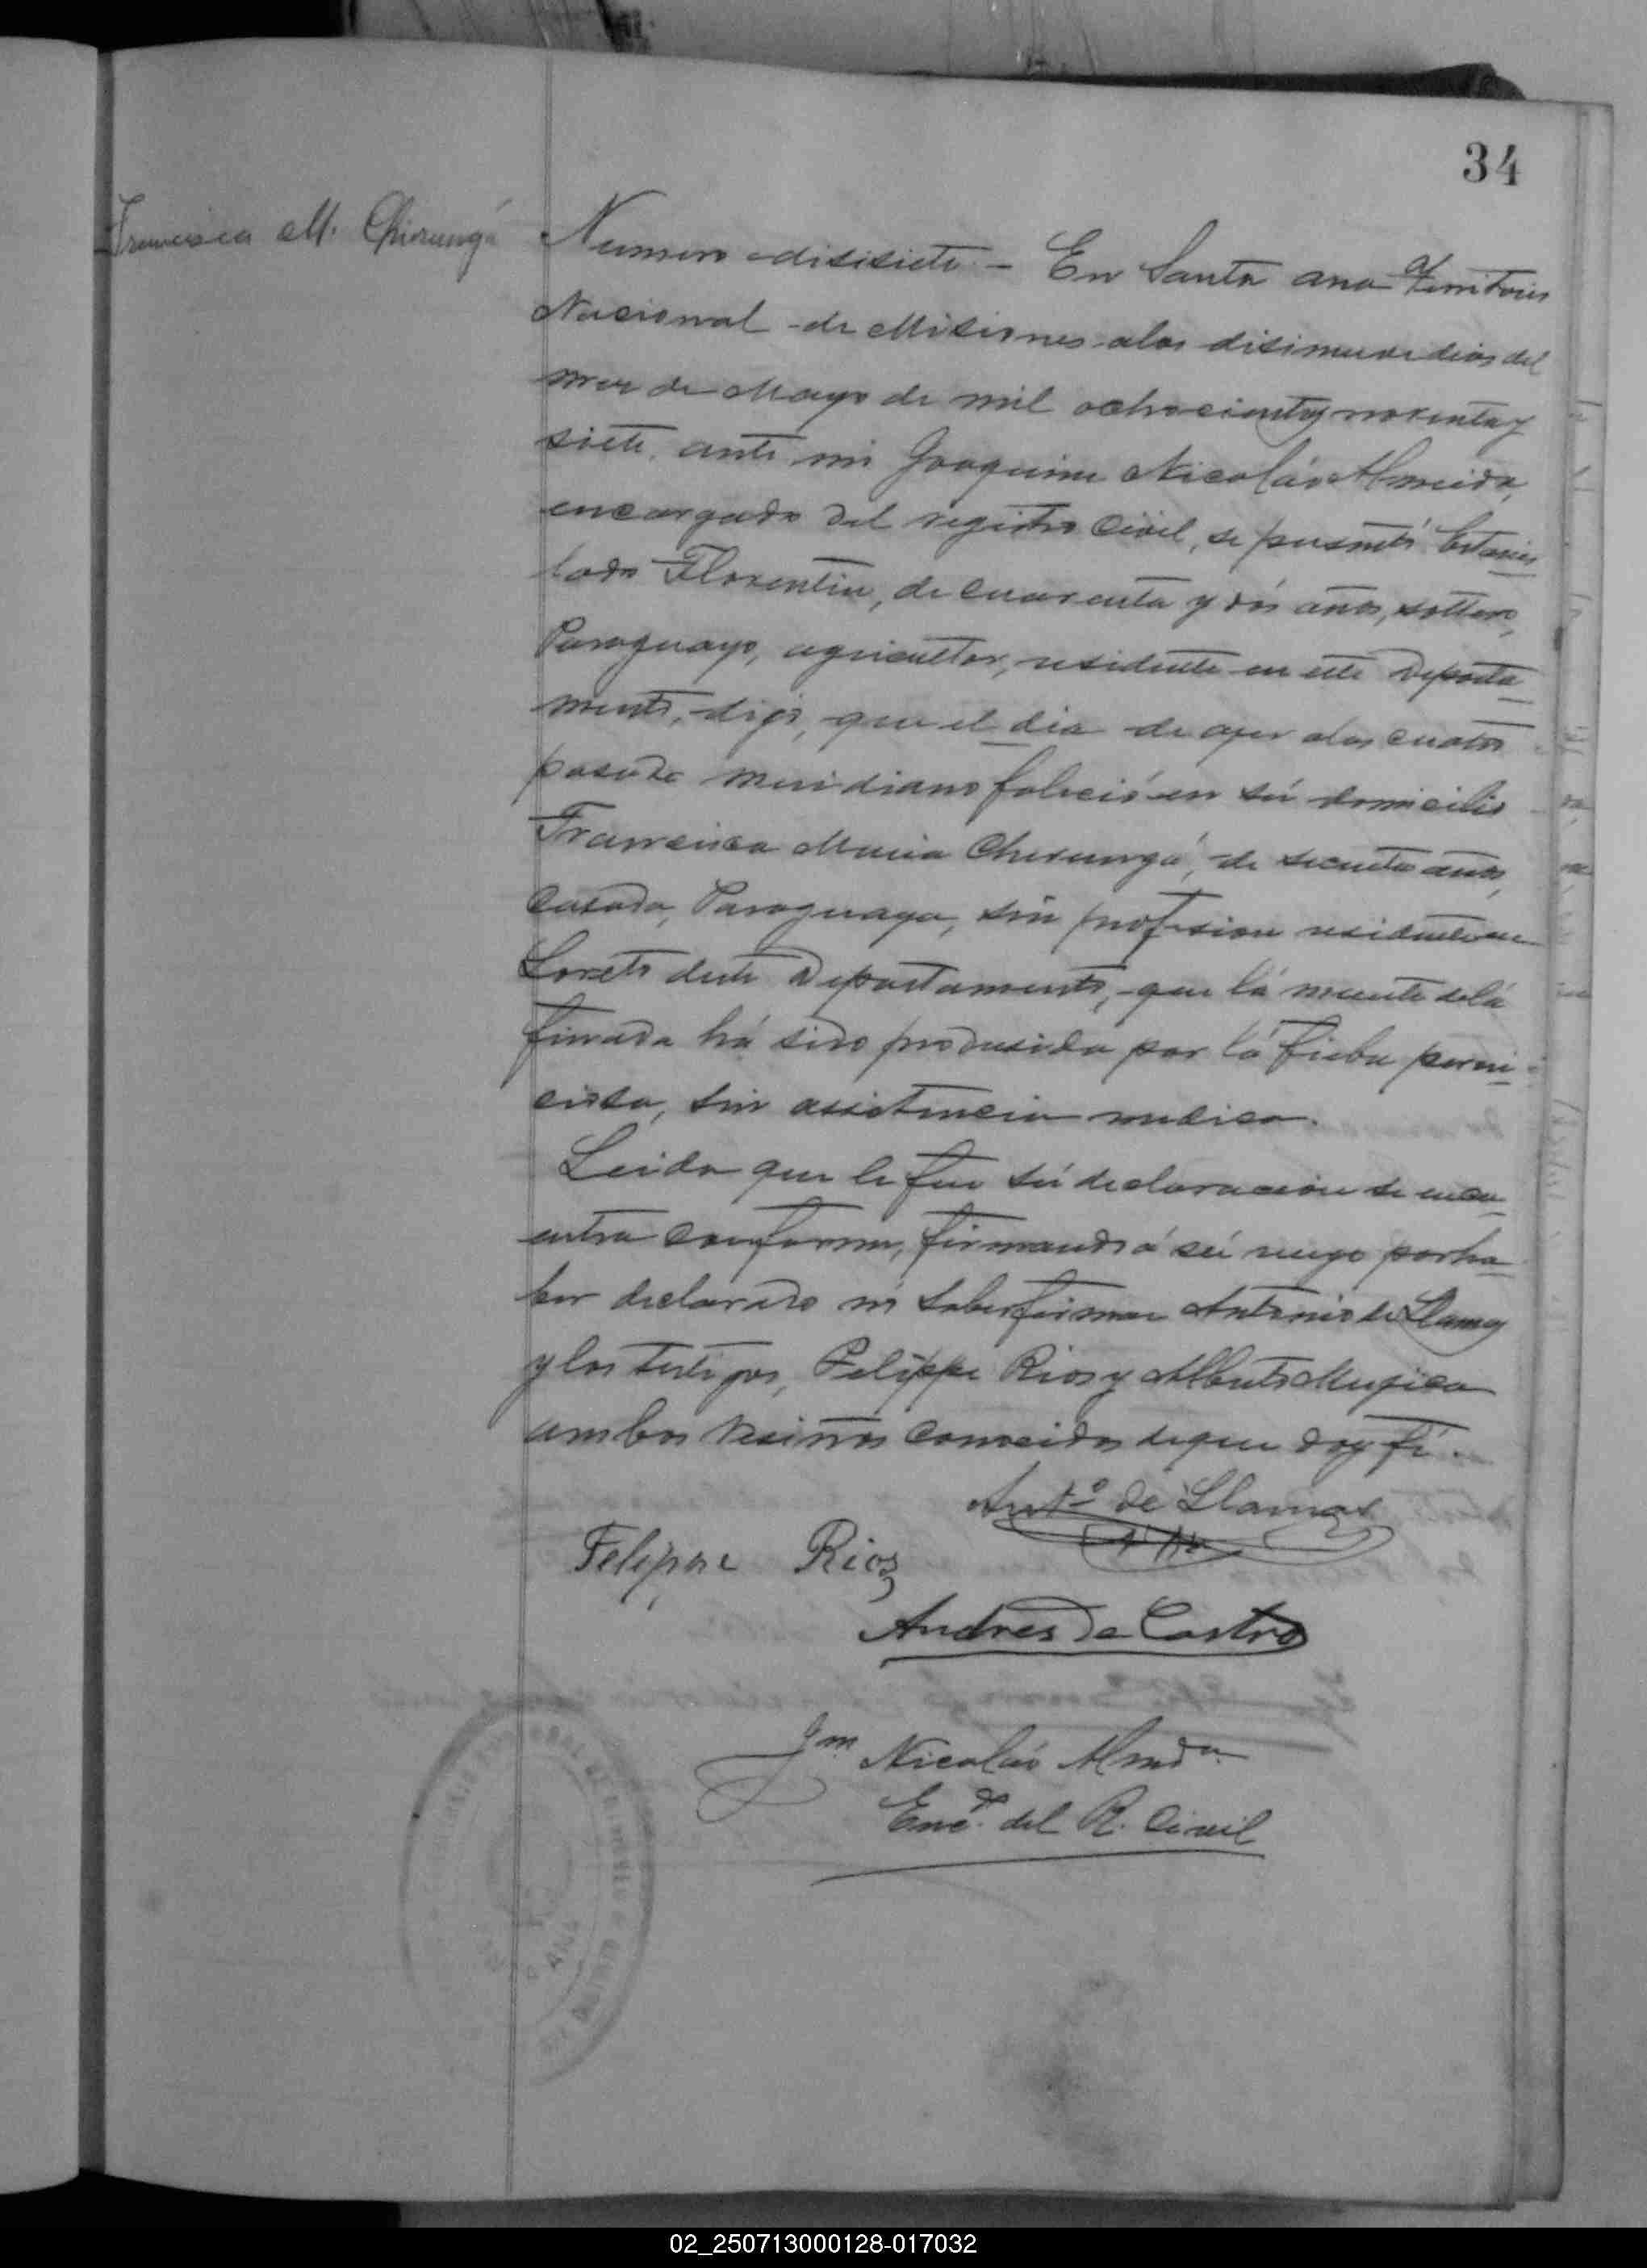 34
Francisca M. Chirungá
Numero disisiete - En Santa ana Territorio
Nacional de Misiones alos disinueve dias del
mes de Mayo de mil ochocientos noventa y
siete, ante mi Joaquim Nicolás Almeida,
encargado del registro Civil, se presentó Estanis
lado Florentin, de cuarenta y dós años, soltero,
Paraguayo, agricultor, residente en este Departa
mento, dijó, que el dia de ayer alas cuatro
pasado meridiano faleció en sú domicilio
Francisca Maria Cherungá, de años,
Casada, Paraguaya, sin profesion residente en
Loreto deste Departamento, que lá muerte delá
finada há sido produsida por lá fiebre perni
ciosa, sin assistencia medica.
Leida que le fue sú declaracion se encu
entra conforme, firmandó á sú ruego por ha
ber declarado nó saber firmar Antonio de Llamas
y los testigos, Felippe Rios y Alberto Mugica
ambos vesinos conocidos de que doy fé.
Antº de Llamas
Felippe Rios
Andres de Castro
Jm Nicolás Almda
Encdo. del R. Civil
SANTA ANA
02_250713000128-017032